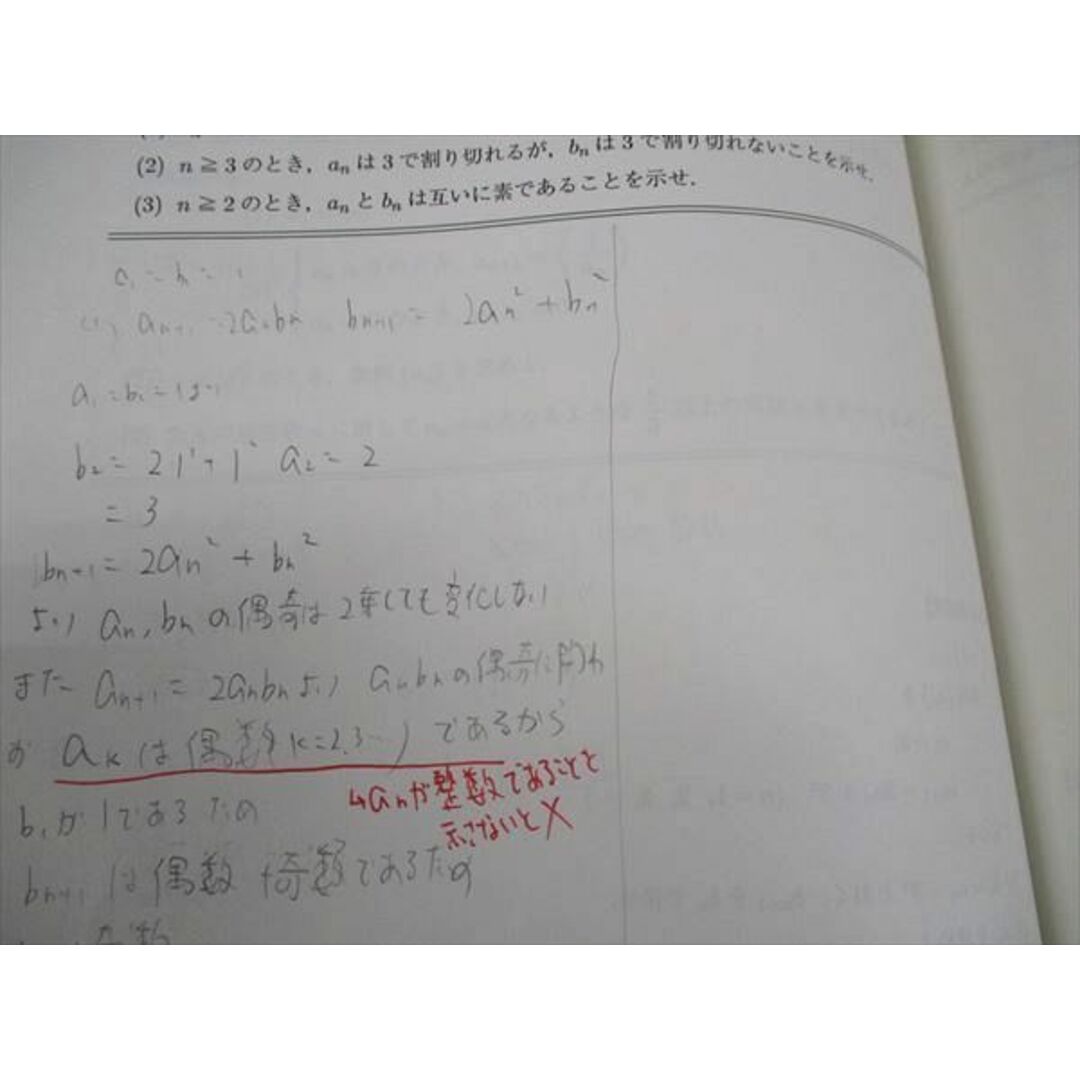 (2) n ≧ 3 のとき，aₙ は 3 で割り切れるが，bₙ は 3 で割り切れないことを示せ．
(3) n ≧ 2 のとき，aₙ と bₙ は互いに素であることを示せ．
a₁ = b₁ = 1
(1) aₙ₊₁ = 2aₙbₙ bₙ₊₁ = 2aₙ² + bₙ²
a₁ = b₁ = 1より
b₂ = 2・1² + 1² a₂ = 2
= 3
bₙ₊₁ = 2aₙ² + bₙ²
より aₙ, bₙ の偶奇は2乗しても変化しない
また aₙ₊₁ = 2aₙbₙ より aₙbₙの偶奇に関わ
aₖ は偶数(k=2,3…) であるから
↳aₙが整数であることを
示さないと×
b₁が1であるため
bₙ₊₁は偶数+奇数であるため
奇数